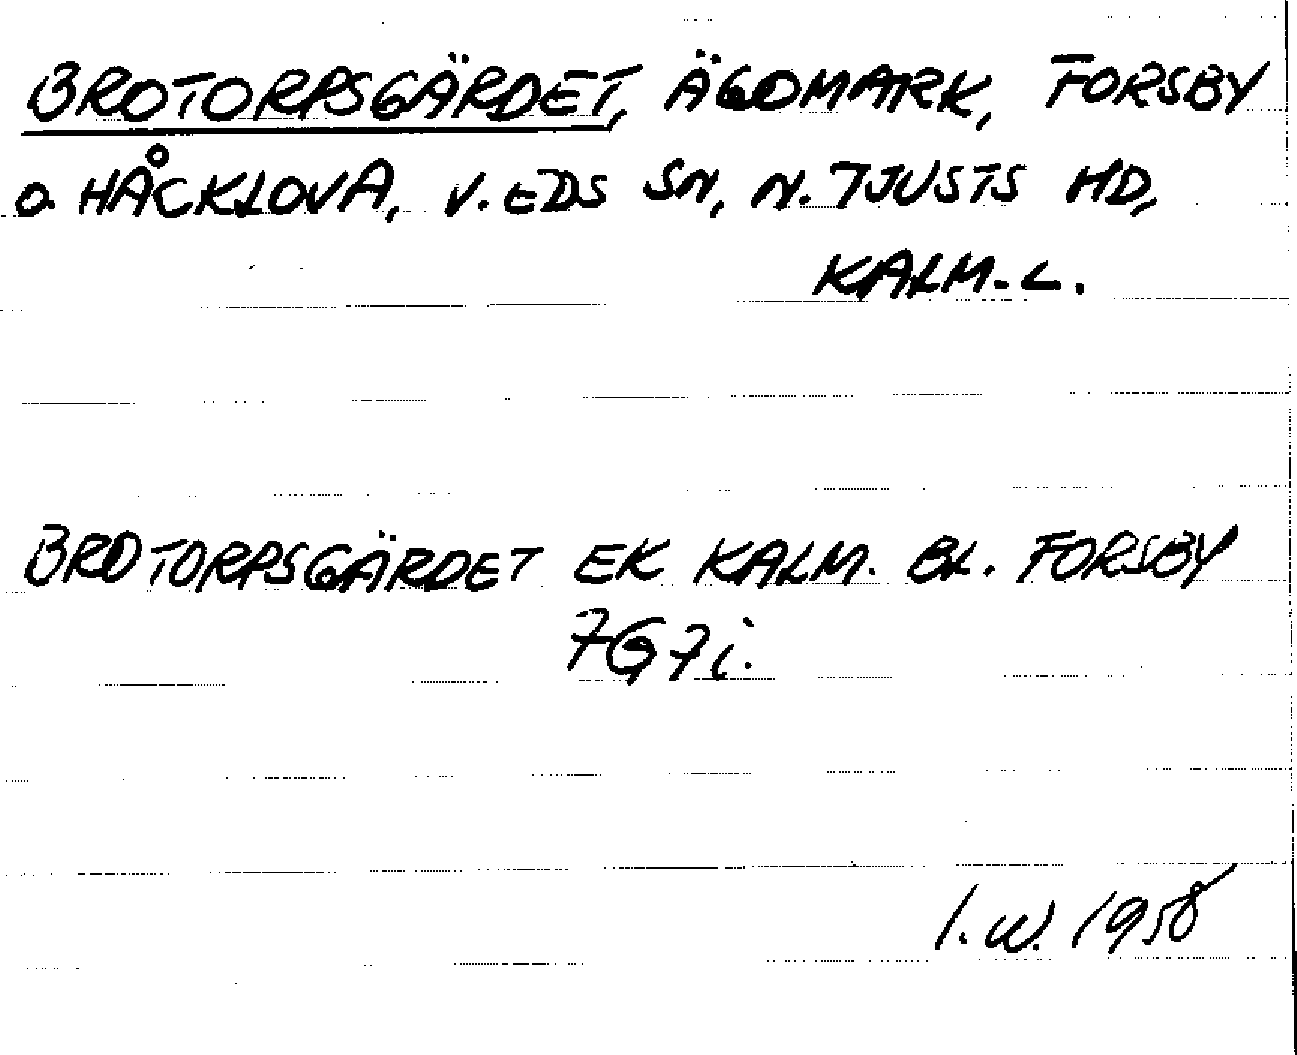 BROTORPSGÄRDET, ÄGOMARK, FORSBY
o. HÅCKLOVA, V. EDS SN, N. TJUSTS HD,
KALM. L.
BROTORPSGÄRDET EK KALM. BL. FORSBY
7G7i.
I. W. 1958